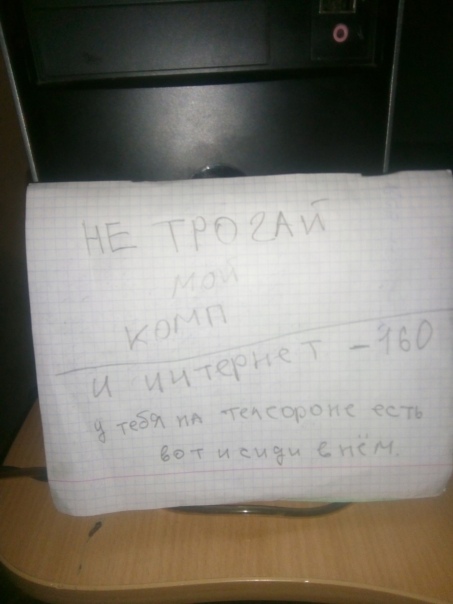 НЕ ТРОГАЙ
мой
комп
и интернет - 960
у тебя на телефоне есть
вот и сиди в нём.